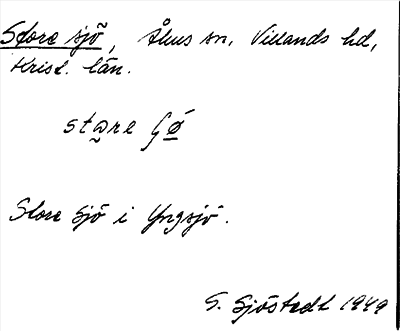 Store sjö, Åhus sn, Villands hd,
Krist. län.
stare ʃø
Store Sjö i Yngsjö.
G. Sjöstedt 1949